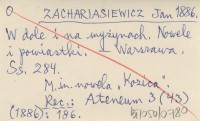 O ZACHARIASIEWICZ Jan 1886.
W dole i na wyżynach. Nowele
i powiastki. Warszawa.
Ss. 284.
M.in. nowela „Kozica".
Rec.: Ateneum 3 (43)
(1886): 186.